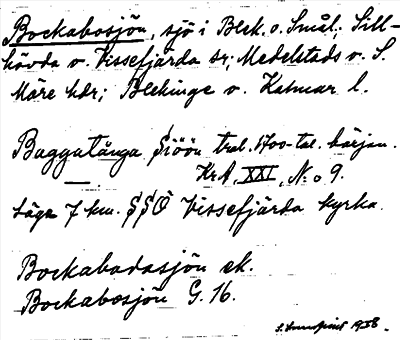 Bockabosjön, sjö i Blek. o. Smål.: Sill-
hövda o. Vissefjärda sr; Medelstads o. S.
Möre hdr; Blekinge o. Kalmar l.
Baggatånga Siöön trol. 1700-tal. början.
KrA, XXI, N:o 9.
Läge 7 km. SSÖ Vissefjärda kyrka.
Bockabadasjön ek.
Bockabosjön G. 16.
1938.